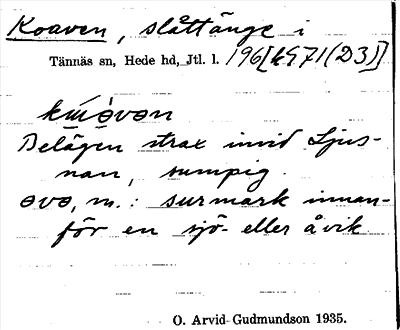 Koaven, slåttänge i
Tännäs sn, Hede hd, Jtl. l. 196[kG71(D3)]
Belägen strax invid Ljus-
nan, sumpig.
ova, m.: surmark innan-
för en sjö- eller åvik.
O. Arvid Gudmundson 1935.